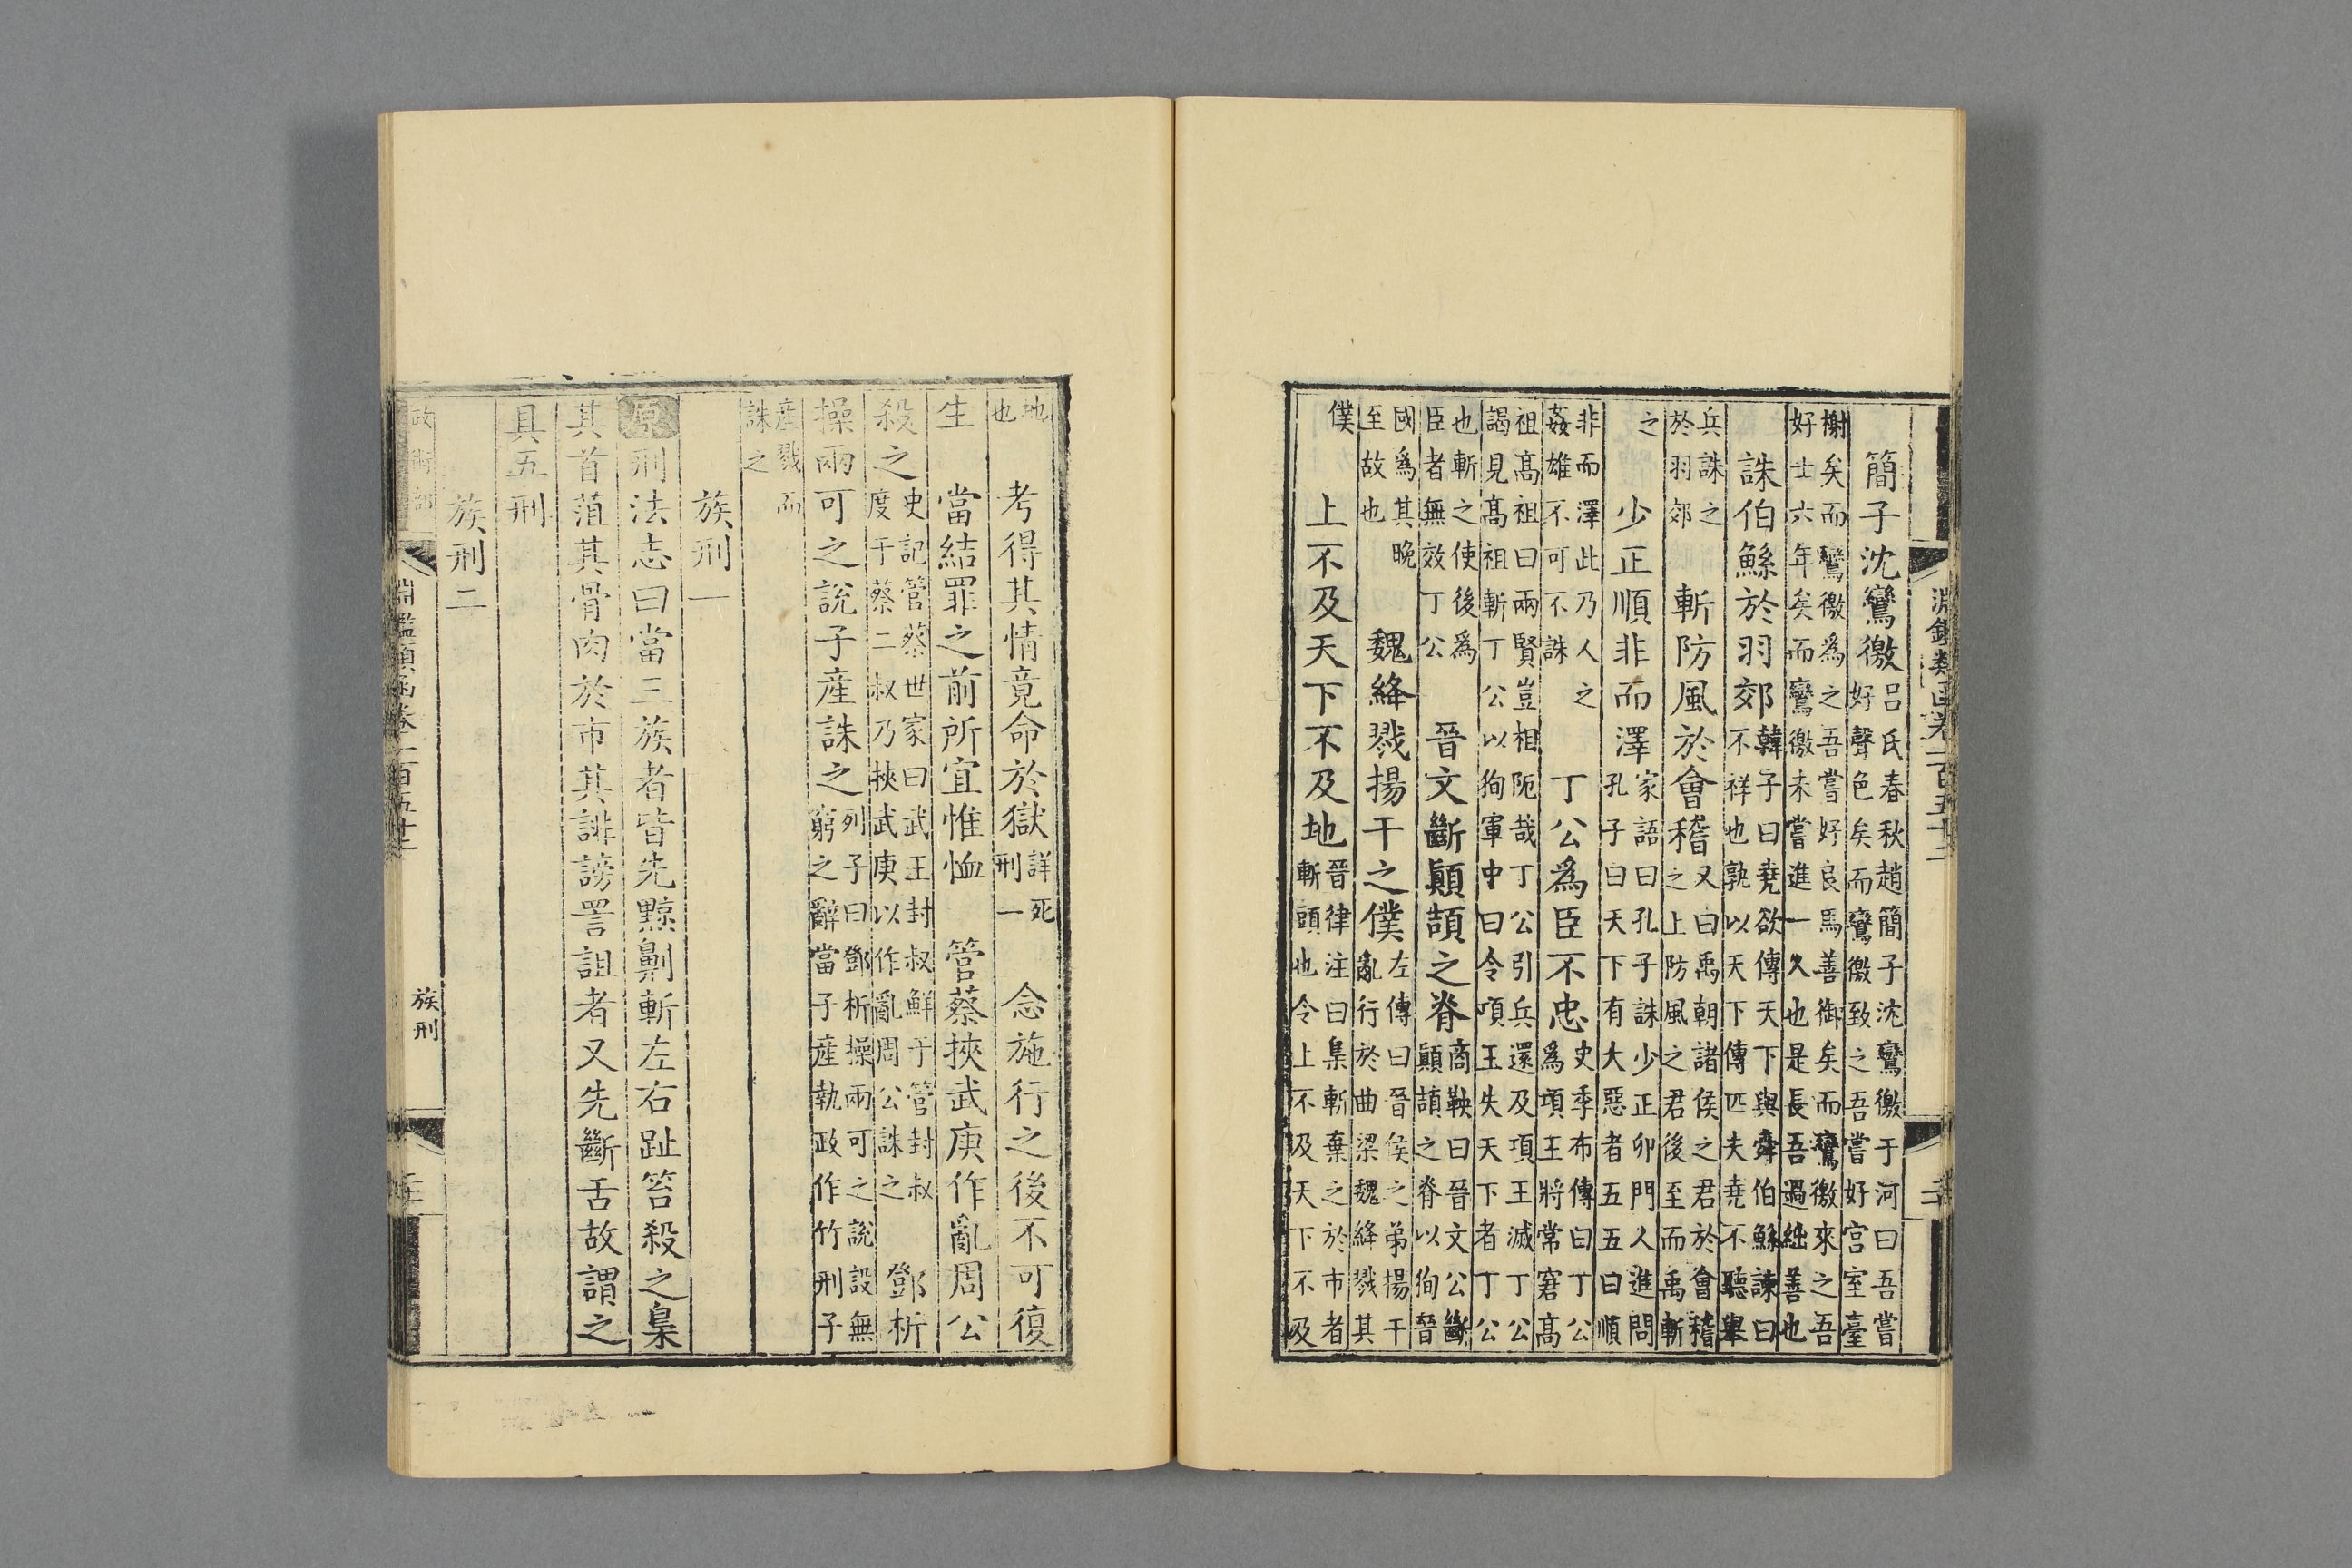 淵鑑類函卷一百五十二
簡子沈鸞徼呂氏春秋趙簡子沈鸞徼于河曰吾嘗好聲色矣而鸞徼致之吾嘗好宮室臺
榭矣而鸞徼為之吾嘗好良馬善御矣而鸞徼來之吾好士六年矣而鸞徼未嘗進一人也是長吾過絀善也
誅伯鯀於羽郊韓子曰堯欲傳天下與舜伯鯀諫曰不祥也孰以天下傳匹夫堯不聽舉
兵誅之於羽郊 斬防風於會稽又曰禹朝諸侯之君於會稽之上防風之君後至而禹斬
之 少正順非而澤家語曰孔子誅少正卯門人進問孔子曰天下有大惡者五五曰順
非而澤此乃人之姦雄不可不誅 丁公爲臣不忠史季布傳曰丁公爲項王將常窘髙
祖髙祖曰兩賢豈相阨哉丁公引兵還及項王滅丁公謁見髙祖斬丁公以狥軍中曰令項王失天下者丁公
也斬之使後爲臣者無效丁公 晉文斷顚頡之脊商鞅曰晉文公斷顚頡之脊以狥晉
國爲其晚至故也 魏絳戮揚干之僕左傳曰晉侯之弟揚干亂行於曲梁魏絳戮其
僕 上不及天下不及地晉律注曰梟斬棄之於市者斬頭也令上不及天下不及
地也 考得其情竟命於獄詳死刑一 念施行之後不可復
生 當結罪之前所宜惟恤 管蔡挾武庚作亂周公
殺之史記管蔡世家曰武王封叔鮮于管封叔度于蔡二叔乃挾武庚以作亂周公誅之 鄧析
操兩可之說子産誅之列子曰鄧析操兩可之說設無窮之辭當子産執政作竹刑子
産戮而誅之
族刑一
原刑法志曰當三族者皆先黥劓斬左右趾笞殺之梟
其首菹其骨肉於市其誹謗詈詛者又先斷舌故謂之
具五刑
族刑二
政術部 淵鑑類函卷一百五十二 族刑